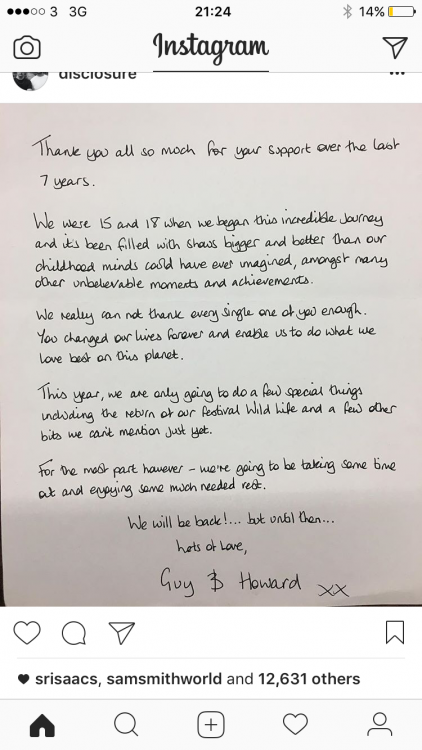 3 3G 21:24 14%
Instagram
disclosure
Thank you all so much for your support over the last
7 years.
We were 15 and 18 when we began this incredible journey
and it's been filled with shows bigger and better than our
childhood minds could have ever imagined, amongst many
other unbelievable moments and achievements.
We really can not thank every single one of you enough.
You changed our lives forever and enable us to do what we
love best on this planet.
This year, we are only going to do a few special things
including the return of our festival Wild Life and a few other
bits we can't mention just yet.
For the most part however - we're going to be taking some time
out and enjoying some much needed rest.
We will be back!... but until then...
Lots of Love,
Guy & Howard xx
srisaacs, samsmithworld and 12,631 others